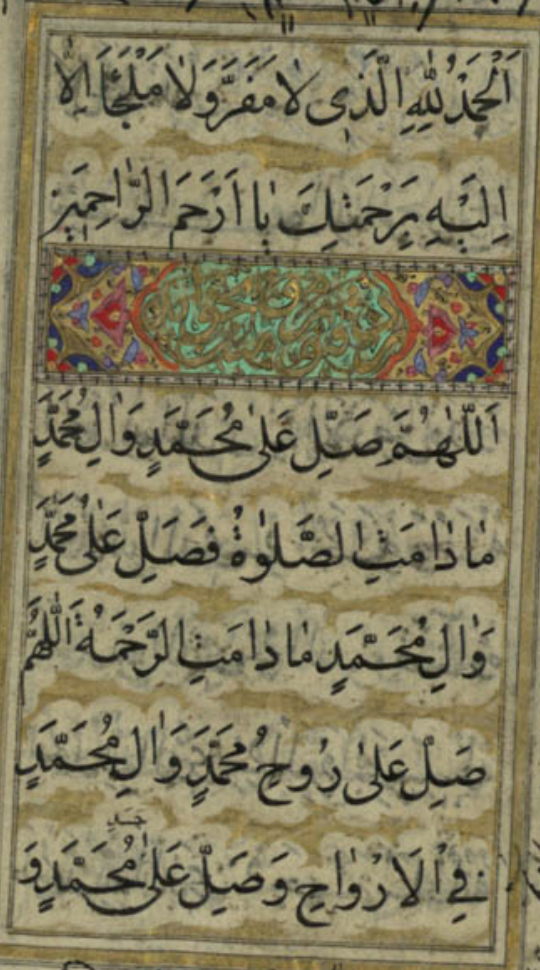 اَلْحَمْدُ لِلّٰهِ الَّذٖى لَا مَفَرَّ وَلَا مَلْجَاَ اِلَّا
اِلَيْهِ بِرَحْمَتِكَ يَا اَرْحَمَ الرَّاحِمٖينَ
اَللّٰهُمَّ صَلِّ عَلٰى مُحَمَّدٍ وَاٰلِ مُحَمَّدٍ
مَا دَامَتِ الصَّلٰوةُ فَصَلِّ عَلٰى مُحَمَّدٍ
وَاٰلِ مُحَمَّدٍ مَا دَامَتِ الرَّحْمَةُ اَللّٰهُمَّ
صَلِّ عَلٰى رُوحِ مُحَمَّدٍ وَاٰلِ مُحَمَّدٍ
فِى الْاَرْوَاحِ وَصَلِّ عَلٰى جَسَدِ مُحَمَّدٍ وَ